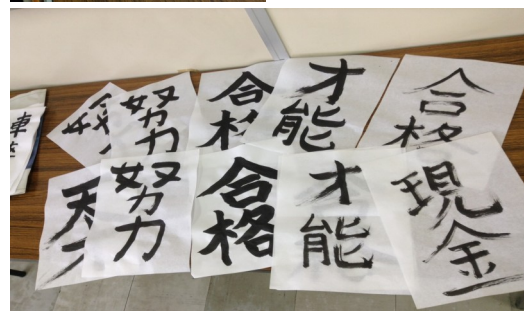 努力
合格
才能
合格
天才
努力
合格
才能
現金